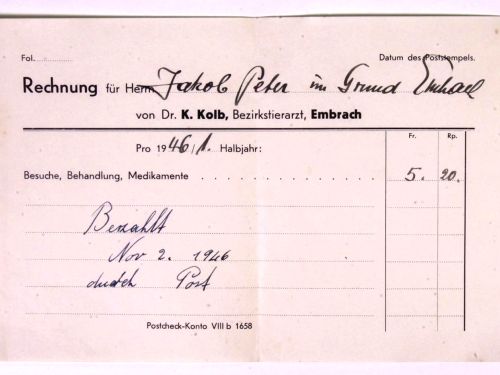 Fol.
Datum des Poststempels.
Rechnung für Herrn Jakob Peter im Grund Embrach
von Dr. K. Kolb, Bezirkstierarzt, Embrach
Fr. Rp.
Pro 1946/1. Halbjahr:
Besuche, Behandlung, Medikamente 5. 20.
Bezahlt
Nov 2. 1946
durch Post
Postcheck-Konto VIII b 1658